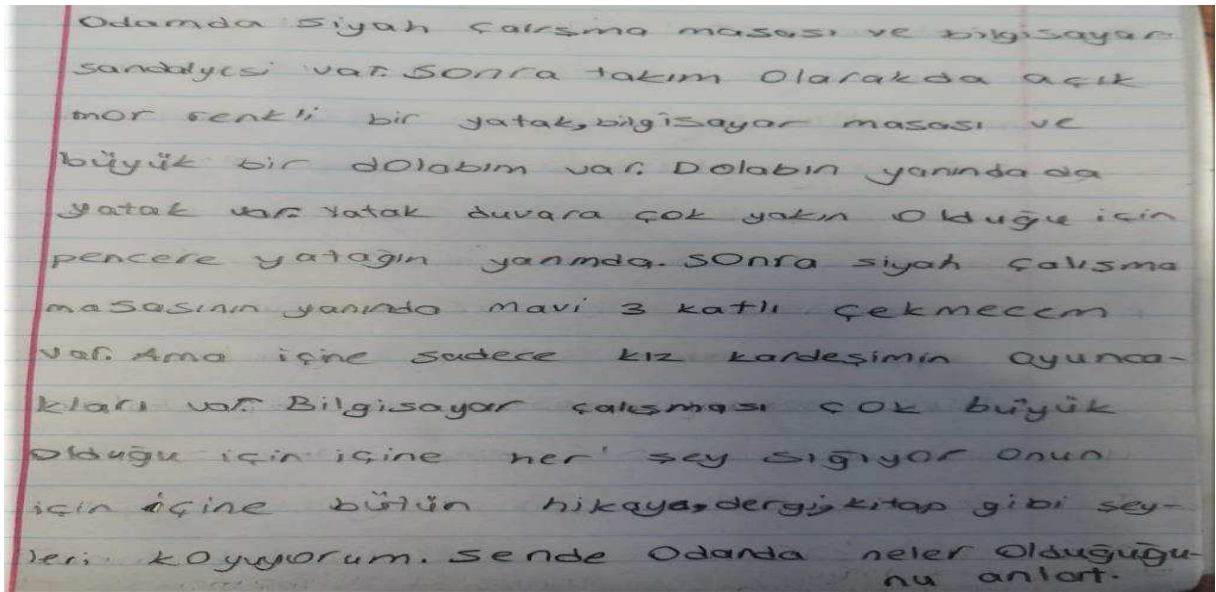 Odamda siyah çalışma masası ve bilgisayar
sandalyesi var. Sonra takım olarakda açık
mor renkli bir yatak, bilgisayar masası ve
büyük bir dolabım var. Dolabın yanında da
yatak var. Yatak duvara çok yakın olduğu için
pencere yatağın yanında. Sonra siyah çalışma
masasının yanında mavi 3 katlı çekmecem
var. Ama içine sadece kız kardeşimin oyunca-
kları var. Bilgisayar çalışması çok büyük
olduğu için içine her şey sığıyor onun
için içine bütün hikaye, dergi, kitap gibi şey-
leri koyuyorum. Sende odanda neler olduğuğu-
nu anlat.